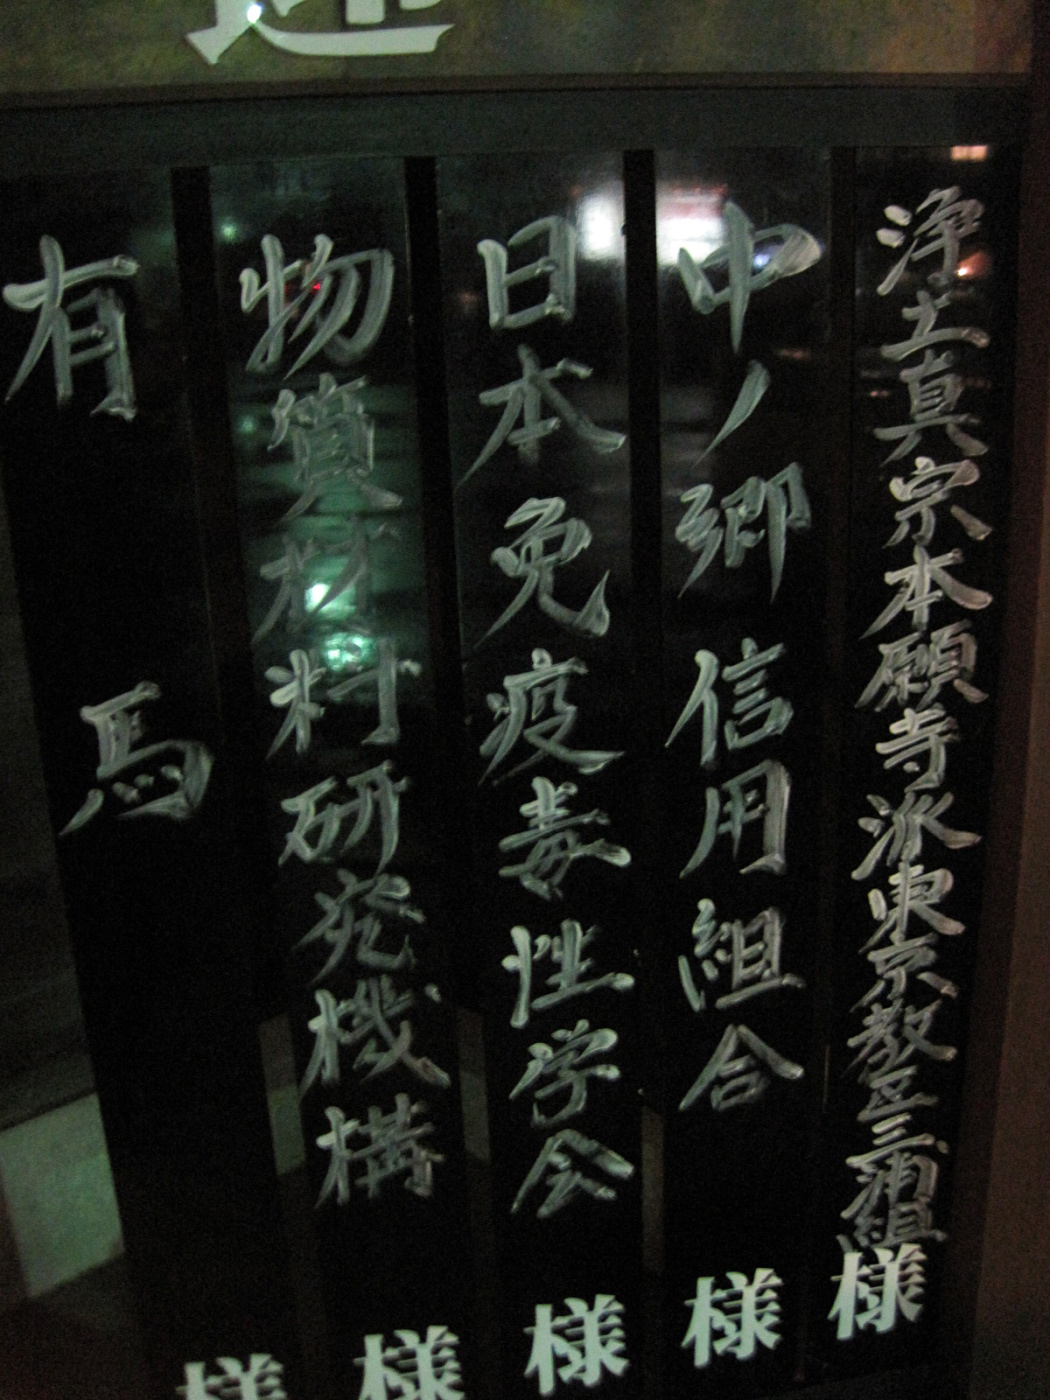 浄土真宗本願寺派東京教区三浦組様
中ノ郷信用組合様
日本免疫毒性学会様
物質材料研究機構様
有馬様